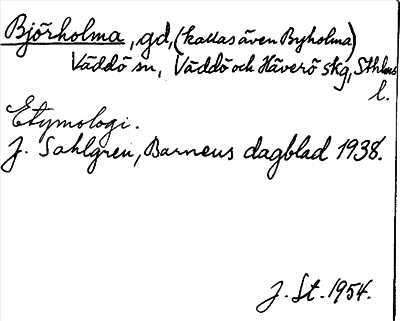 Björholma, gd, (kallas även Byholma)
Väddö sn, Väddö och Häverö skg, Sthlms
l.
Etymologi.
J. Sahlgren, Barnens dagblad 1938.
J. St. 1954.